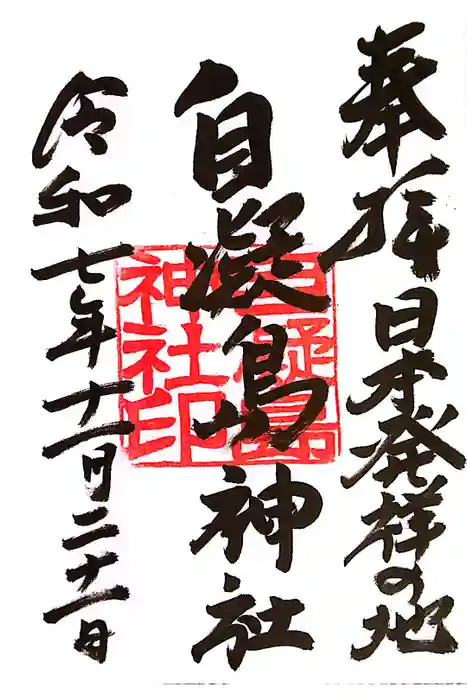 奉拝 日本発祥の地
自凝島神社
自凝島
神社印
令和七年十一月二十一日